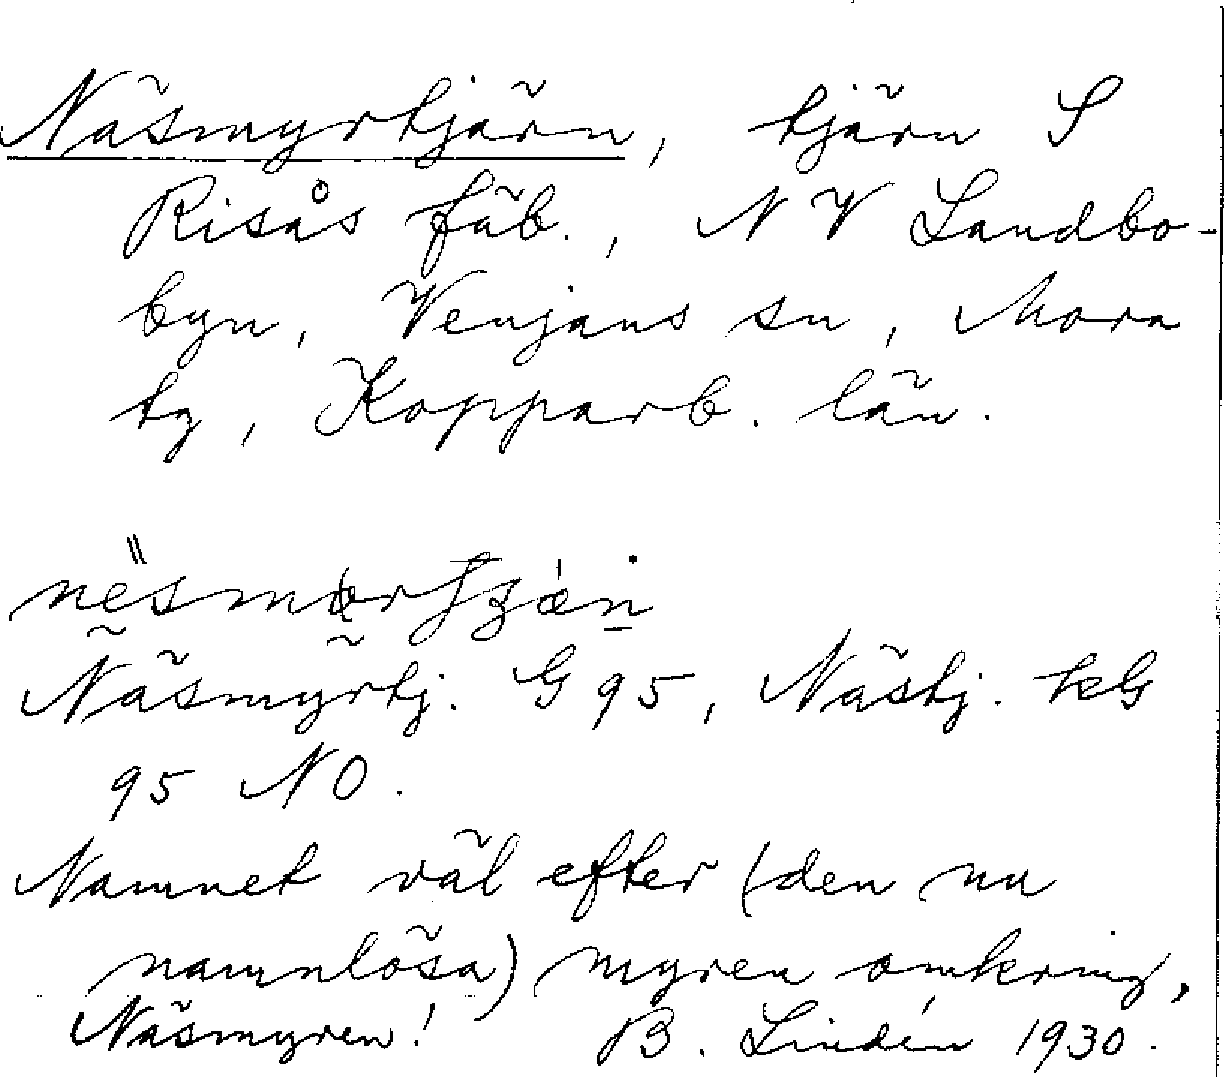 Näsmyrtjärn, tjärn S
Risås fäb., NV Landbo-
byn, Venjans sn, Mora
tg, Kopparb. län.
Näsmyrtj. G 95, Nästj. kG
95 NO.
Namnet väl efter (den nu
namnlösa) myren omkring,
Näsmyren! B. Lindén 1930.